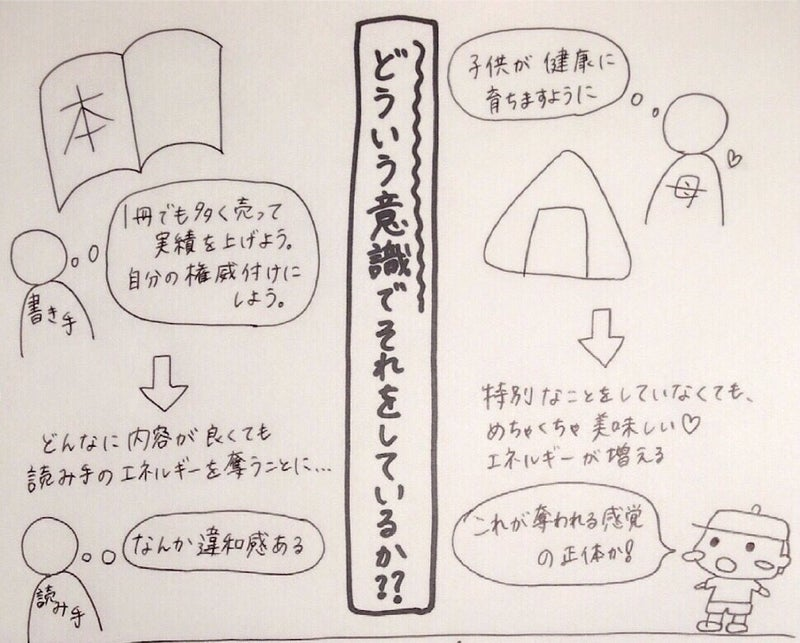 本
1冊でも多く売って
実績を上げよう。
自分の権威付けに
しよう。
書き手
どんなに内容が良くても
読み手のエネルギーを奪うことに…
なんか違和感ある
読み手
どういう意識でそれをしているか??
子供が健康に
育ちますように
母
特別なことをしていなくても、
めちゃくちゃ美味しい♡
エネルギーが増える
これが奪われる感覚
の正体か!